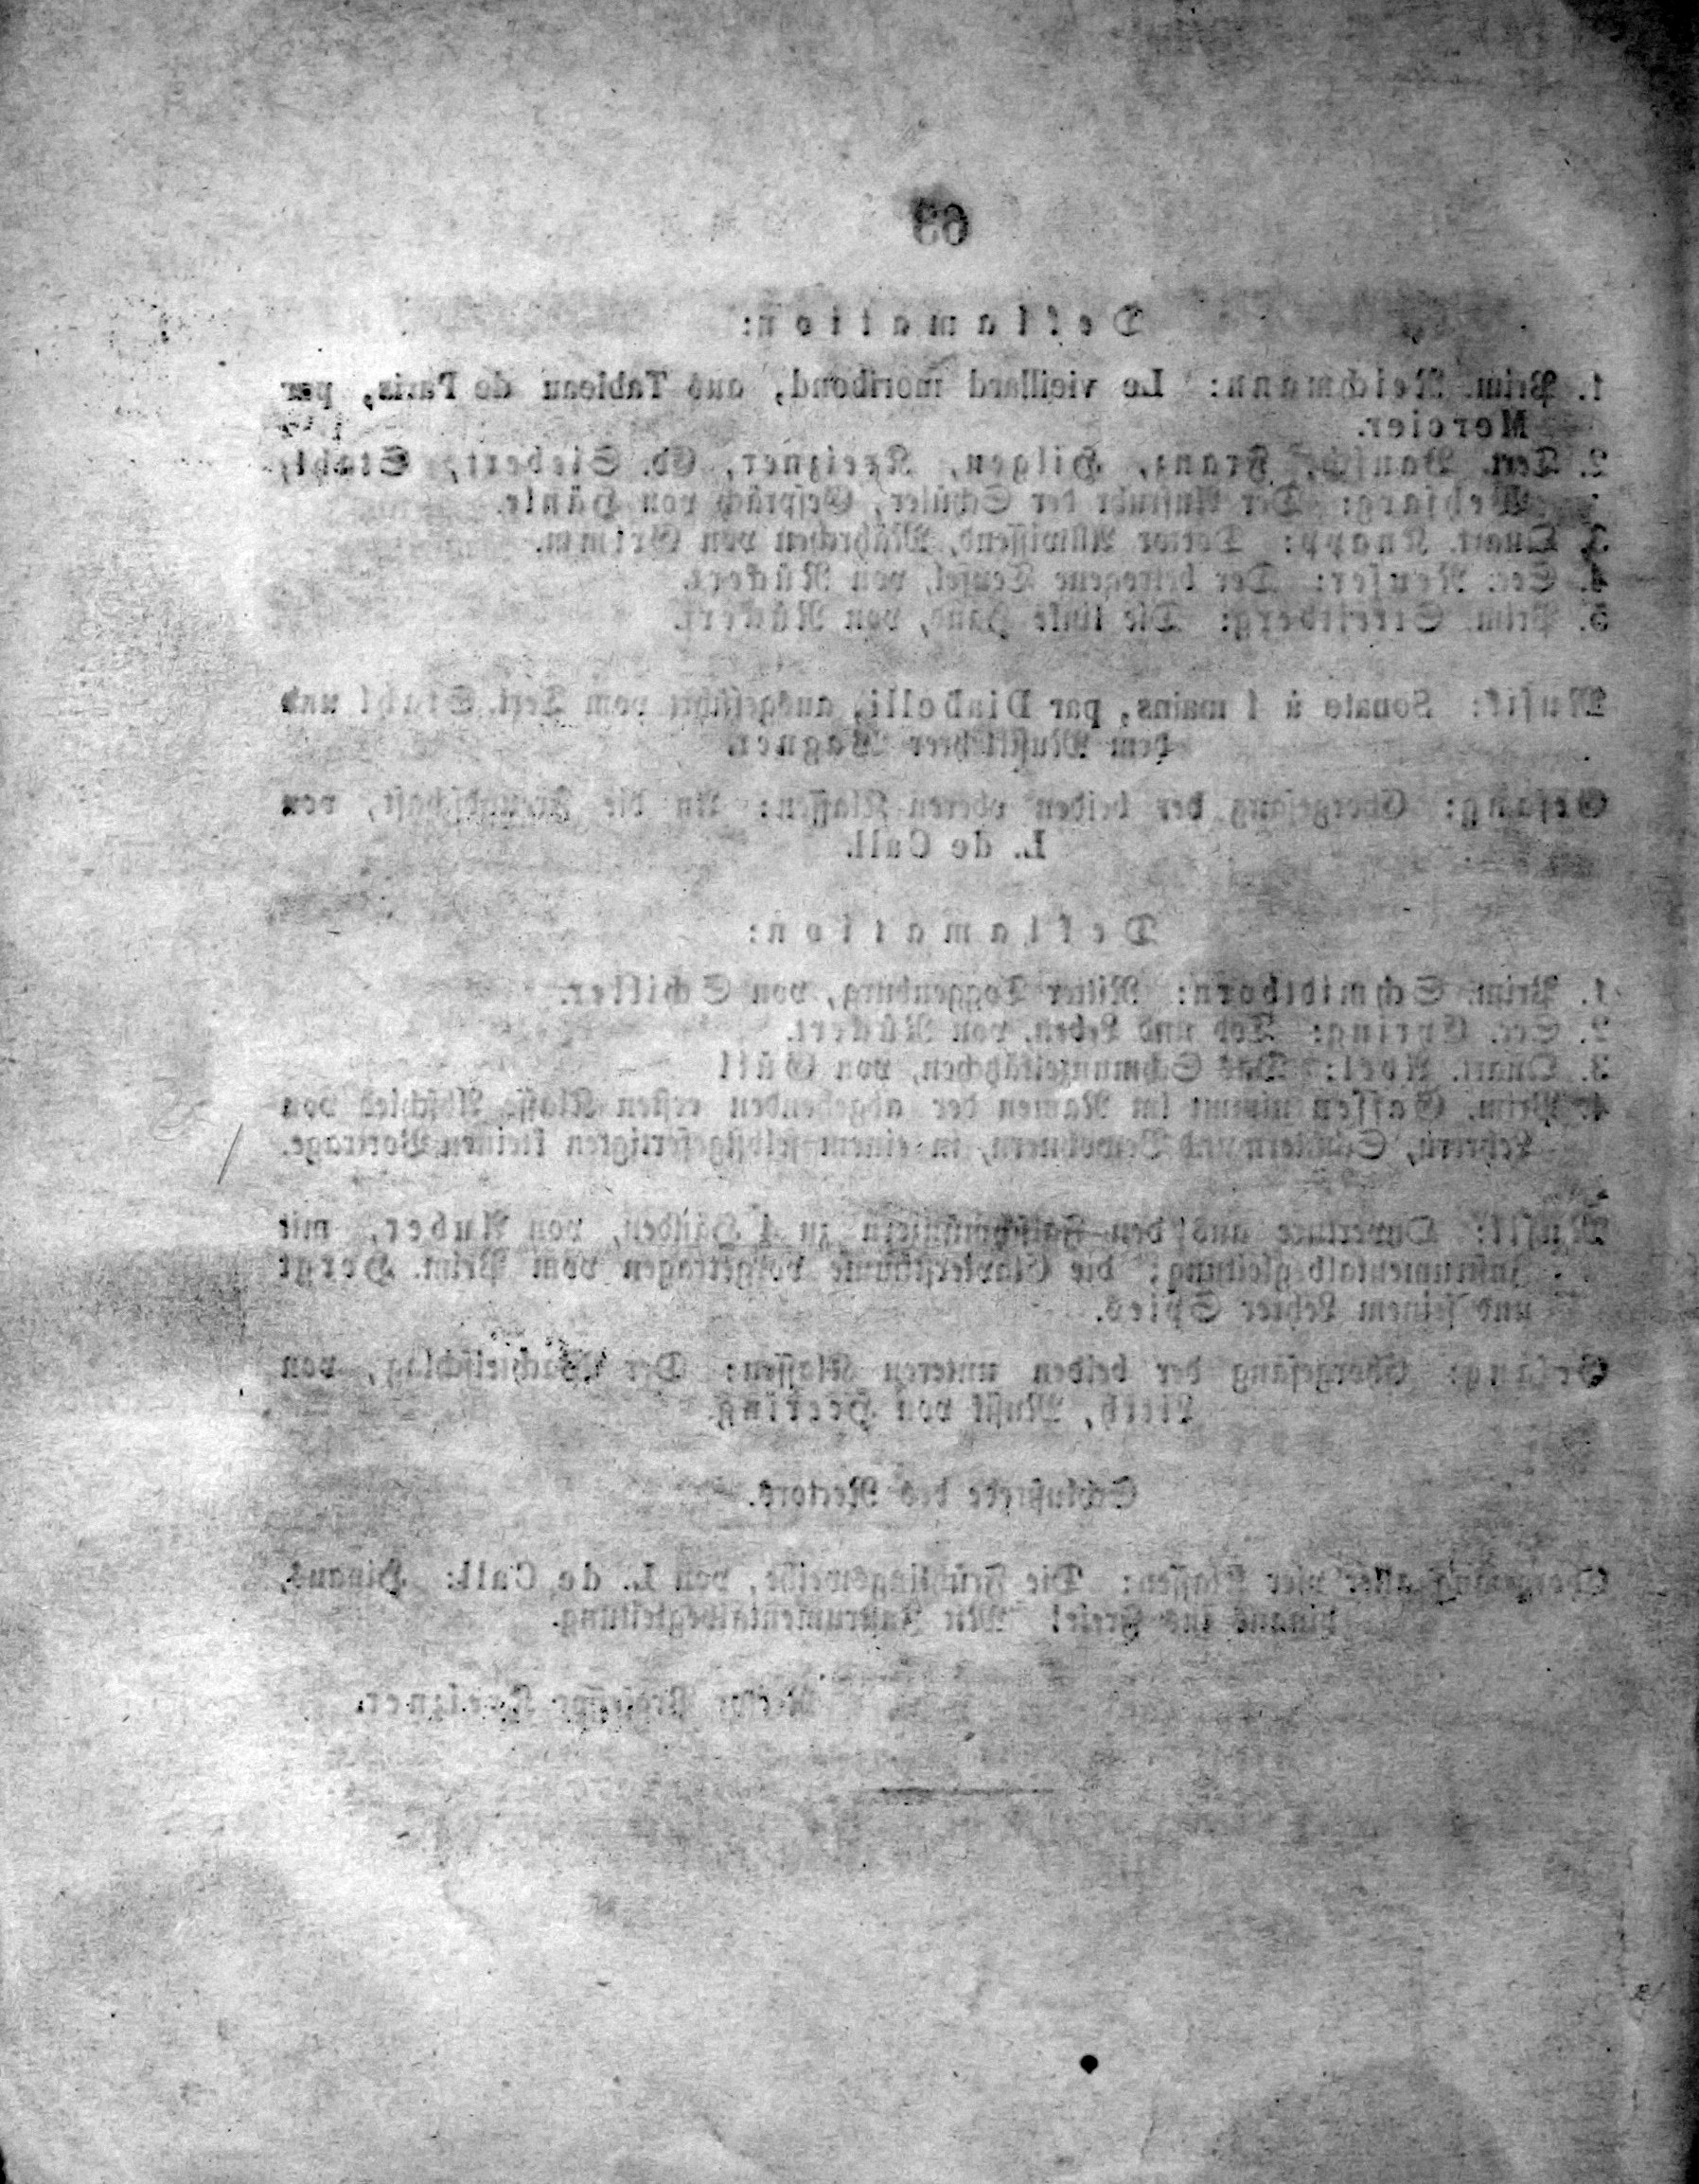 63
Deklamation:
1. Prim. Reichmann: Le vieillard moribond, aus Tableau de Paris, par
Mercier.
2. Tert. Franz, Hilgen, Kreizner, Siebert, Stahl,
Der Aufruhr der Schüler, Gespräch von Hänle.
3. Quart. Knapp: Doctor Allwissend, Mährchen von Grimm.
4. Sec. Der betrogene Teufel, von Rückert.
5. Prim. Die linke Hand, von Rückert.
Musik: Sonate à 4 mains, par Diabelli, ausgeführt vom Tert. Stahl und
dem Musiklehrer Wagner.
Gesang: Chorgesang der beiden oberen Klassen: An die Freundschaft, von
L. de Call.
Deklamation:
1. Prim. Schmidtborn: Ritter Toggenburg, von Schiller.
2. Sec. Tod und Leben, von Rückert.
3. Quart. Abel: Das von Güll
4. Prim. nimmt im Namen der abgehenden ersten Klasse Abschied von
Lehrern, Schülern und Bewohnern, in einem selbstgefertigten kleinen Vortrage.
Musik: Ouverture aus den Falschmünzern zu 4 Händen, von Auber, mit
Instrumentalbegleitung; die Clavierstimme vorgetragen vom Prim. Hergt
und seinem Lehrer Spies.
Gesang: Chorgesang der beiden unteren Klassen: Der Wachtelschlag, von
Musik von Heering.
Schlußrede des Rectors.
Chorgesang aller vier Klassen: Die Frühlingsweihe, von L. de Call: Hinaus,
hinaus ins Freie! Mit Instrumentalbegleitung.
Rector Professor Kreizner.